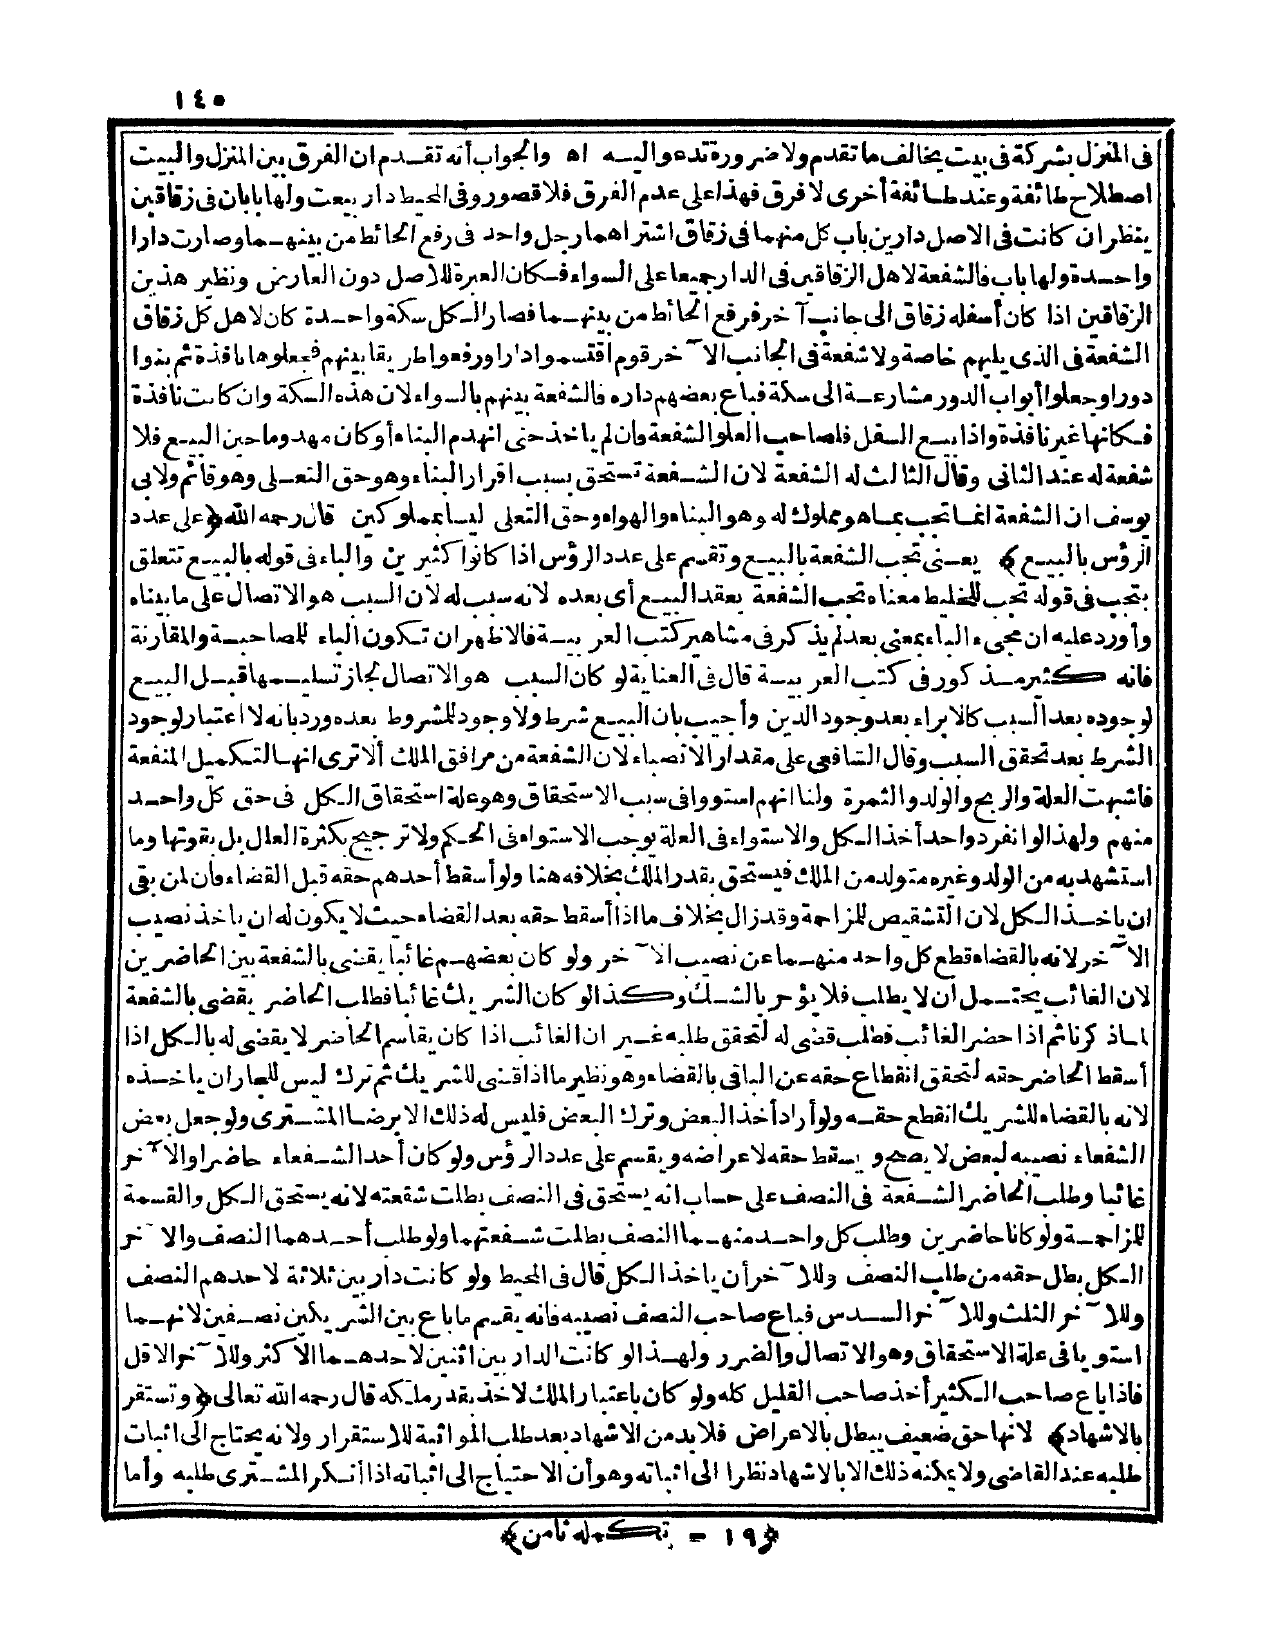 ١٤٥
فى المنزل بشركة فى بيت يخالف ما تقدم ولا ضرورة تدعو اليه اه والجواب أنه تقدم ان الفرق بين المنزل والبيت
اصطلاح طائفة وعند طائفة أخرى لا فرق فهذا على عدم الفرق فلا قصور وفى المحيط دار بيعت ولها بابان فى زقاقين
ينظر ان كانت فى الاصل دارين باب كل منهما فى زقاق اشتراهما رجل واحد فى رفع الحائط من بينهما وصارت دارا
واحدة ولها باب فالشفعة لاهل الزقاقين فى الدار جميعا على السواء فكان العبرة للاصل دون العارض ونظير هذين
الزقاقين اذا كان أسفله زقاق الى جانب آخر فرفع الحائط من بينهما فصار الكل سكة واحدة كان لاهل كل زقاق
الشفعة فى الذى يليهم خاصة ولا شفعة فى الجانب الآخر قوم اقتسموا دارا ورفعوا طريقا بينهم فجعلوها نافذة ثم بنوا
دورا وجعلوا أبواب الدور مشارعة الى سكة فباع بعضهم داره فالشفعة بينهم بالسواء لان هذه السكة وان كانت نافذة
فكانها غير نافذة واذا بيع السفل فلصاحب العلو الشفعة وان لم ياخذ حتى انهدم البناء أو كان مهدوما حين البيع فلا
شفعة له عند الثانى وقال الثالث له الشفعة لان الشفعة تستحق بسبب اقرار البناء وهو حق التعلى وهو قائم ولابى
يوسف ان الشفعة انما تجب بما هو مملوك له وهو البناء والهواء وحق التعلى ليسا بمملوكين قال رحمه الله ﴿على عدد
الرؤس بالبيع﴾ يعنى تجب الشفعة بالبيع وتقسم على عدد الرؤس اذا كانوا كثيرين والباء فى قوله بالبيع تتعلق
بتجب فى قوله تجب للخليط معناه تجب الشفعة بعقد البيع أى بعده لانه سبب له لان السبب هو الاتصال على ما بيناه
وأورد عليه ان مجىء الباء بمعنى بعد لم يذكر فى مشاهير كتب العربية فالاظهر ان تكون الباء للمصاحبة والمقارنة
فانه كثير مذكور فى كتب العربية قال فى العناية لو كان السبب هو الاتصال لجاز تسليمها قبل البيع
لوجوده بعد السبب كالابراء بعد وجود الدين وأجيب بان البيع شرط ولا وجود للمشروط بعده ورد بانه لا اعتبار لوجود
الشرط بعد تحقق السبب وقال الشافعى على مقدار الانصباء لان الشفعة من مرافق الملك ألا ترى انها لتكميل المنفعة
فاشبهت الغلة والربح والولد والثمرة ولنا انهم استووا فى سبب الاستحقاق وهو علة استحقاق الكل فى حق كل واحد
منهم ولهذا لو انفرد واحد أخذ الكل والاستواء فى العلة يوجب الاستواء فى الحكم ولا ترجيح بكثرة العلل بل بقوتها وما
استشهد به من الولد وغيره متولد من الملك فيستحق بقدر الملك بخلافه هنا ولو أسقط أحدهم حقه قبل القضاء فان لمن بقى
ان ياخذ الكل لان التشقيص للمزاحمة وقد زال بخلاف ما اذا أسقط حقه بعد القضاء حيث لا يكون له ان ياخذ نصيب
الآخر لانه بالقضاء قطع كل واحد منهما عن نصيب الآخر ولو كان بعضهم غائبا يقضى بالشفعة بين الحاضرين
لان الغائب يحتمل أن لا يطلب فلا يؤخر بالشك وكذا لو كان الشريك غائبا فطلب الحاضر يقضى بالشفعة
لما ذكرنا ثم اذا حضر الغائب فطلب قضى له لتحقق طلبه غير ان الغائب اذا كان يقاسم الحاضر لا يقضى له بالكل اذا
أسقط الحاضر حقه لتحقق انقطاع حقه عن الباقى بالقضاء وهو نظير ما اذا قضى للشريك ثم ترك ليس للجار ان ياخذه
لانه بالقضاء للشريك انقطع حقه ولو أراد أخذ البعض وترك البعض فليس له ذلك الا برضا المشترى ولو جعل بعض
الشفعاء نصيبه لبعض لا يصح ويسقط حقه لاعراضه ويقسم على عدد الرؤس ولو كان أحد الشفعاء حاضرا والآخر
غائبا وطلب الحاضر الشفعة فى النصف على حساب انه يستحق فى النصف بطلت شفعته لانه يستحق الكل والقسمة
للمزاحمة ولو كانا حاضرين وطلب كل واحد منهما النصف بطلت شفعتهما ولو طلب أحدهما النصف والآخر
الكل بطل حقه من طلب النصف وللآخر أن ياخذ الكل قال فى المحيط ولو كانت دار بين ثلاثة لاحدهم النصف
وللآخر الثلث وللآخر السدس فباع صاحب النصف نصيبه فانه يقسم ما باع بين الشريكين نصفين لانهما
استويا فى علة الاستحقاق وهو الاتصال والضرر ولهذا لو كانت الدار بين اثنين لاحدهما الاكثر وللآخر الاقل
فاذا باع صاحب الكثير أخذ صاحب القليل كله ولو كان باعتبار الملك لاخذ بقدر ملكه قال رحمه الله تعالى ﴿وتستقر
بالاشهاد﴾ لانها حق ضعيف يبطل بالاعراض فلا بد من الاشهاد بعد طلب المواثبة للاستقرار ولانه يحتاج الى اثبات
طلبه عند القاضى ولا يمكنه ذلك الا بالاشهاد نظرا الى اثباته وهو أن الاحتياج الى اثباته اذا أنكر المشترى طلبه وأما
﴿١٩ - تكمله ثامن﴾